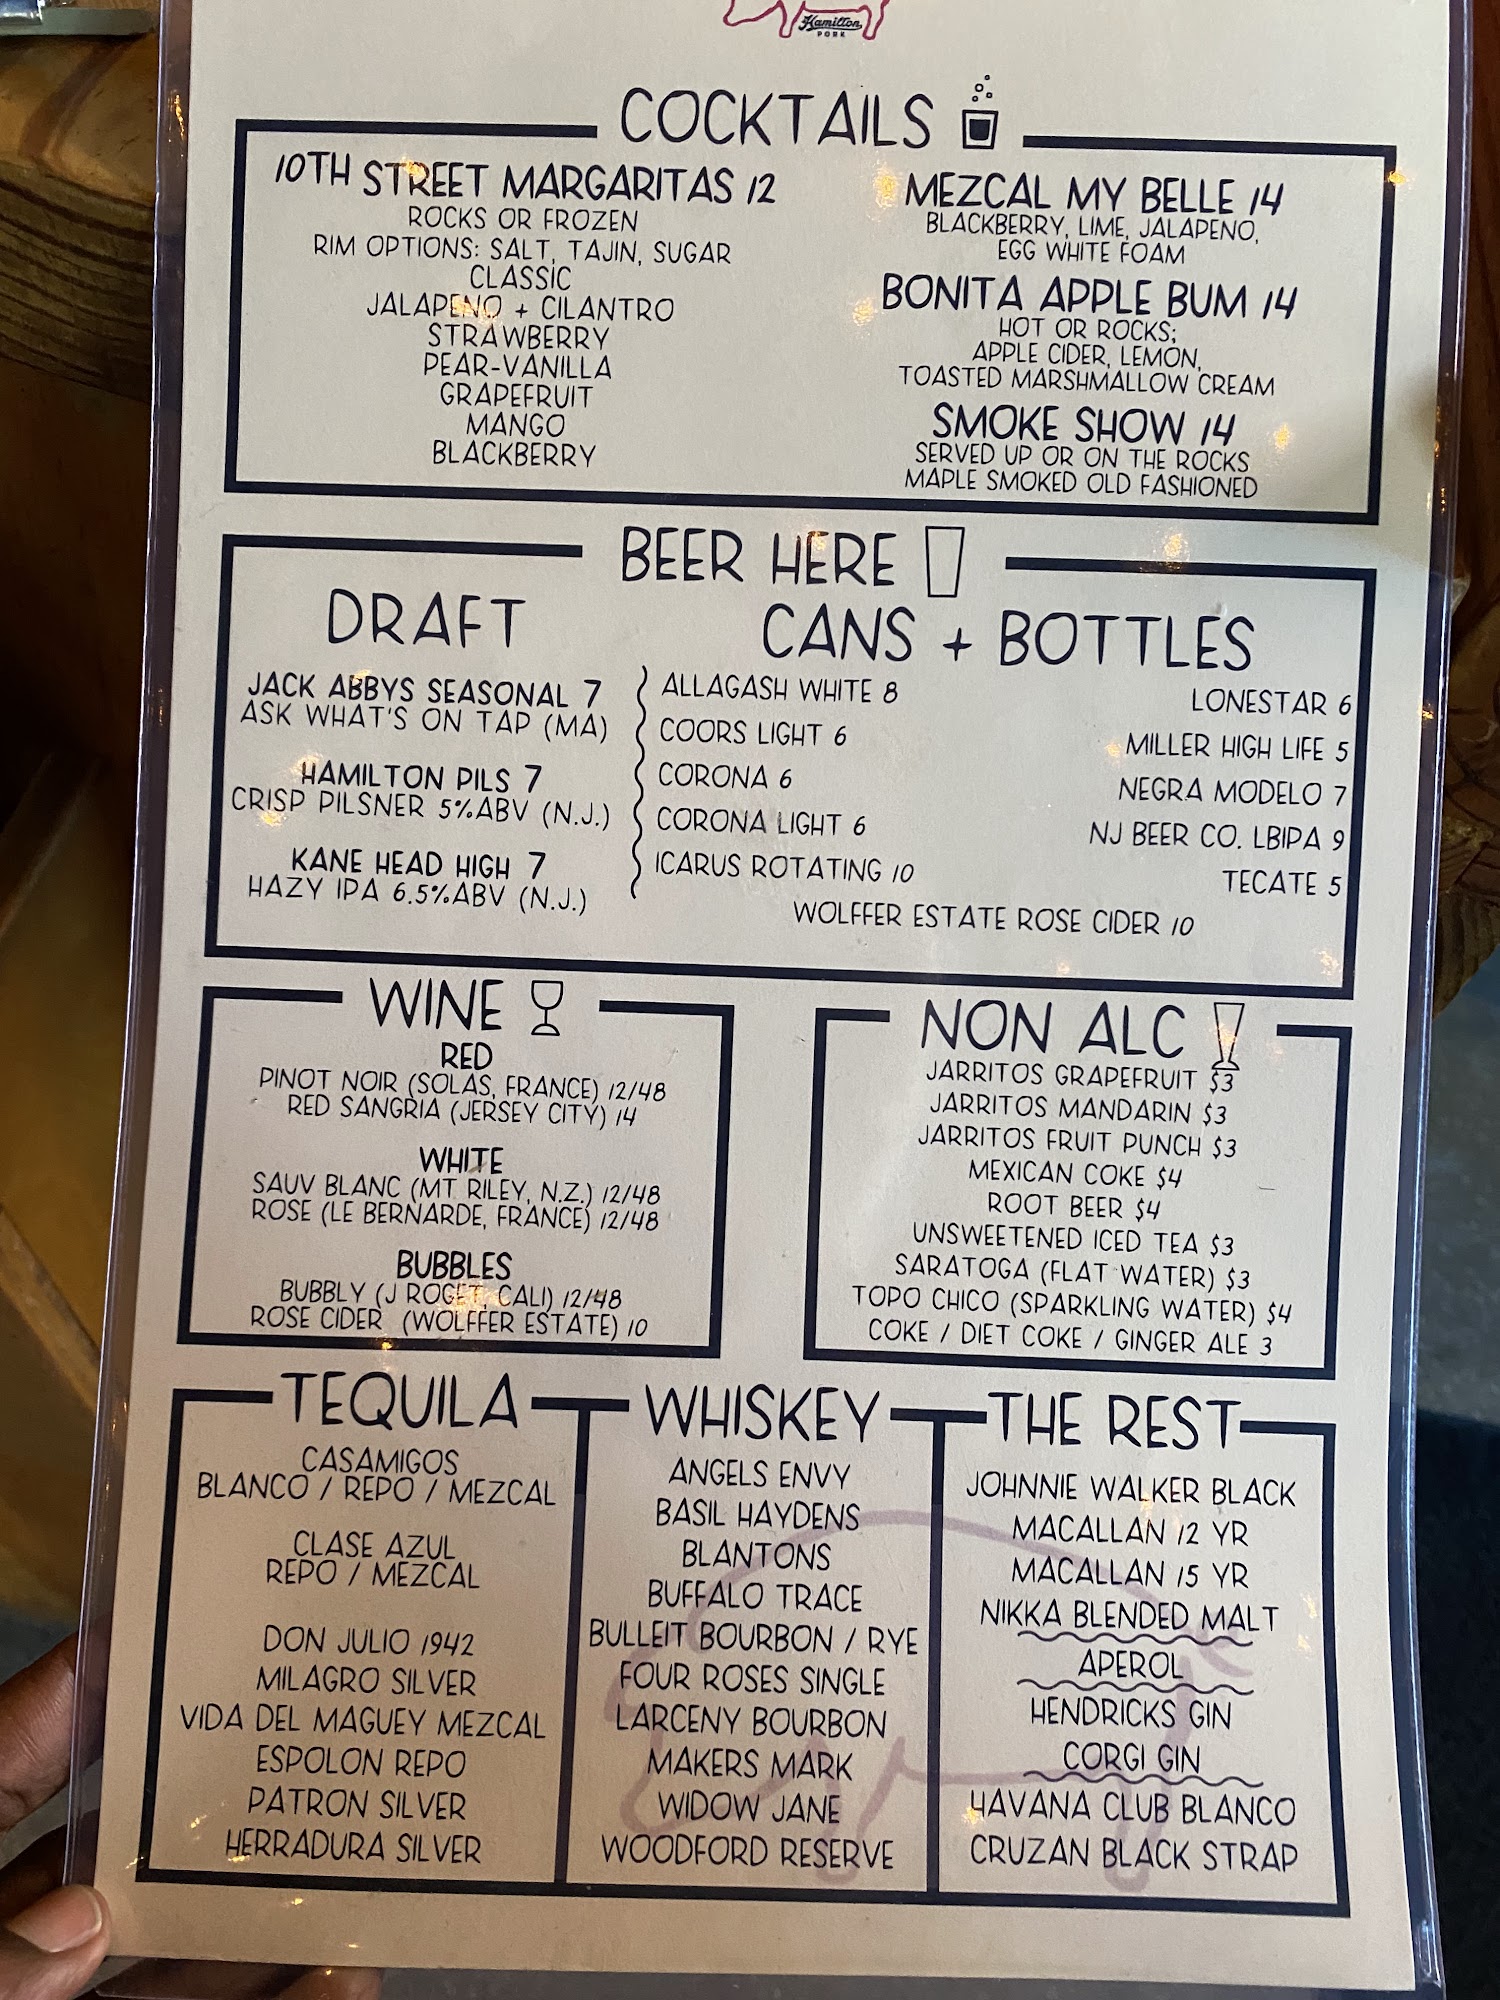 Hamilton
PORK
COCKTAILS
10TH STREET MARGARITAS 12
ROCKS OR FROZEN
RIM OPTIONS: SALT, TAJIN, SUGAR
CLASSIC
JALAPENO + CILANTRO
STRAWBERRY
PEAR-VANILLA
GRAPEFRUIT
MANGO
BLACKBERRY
MEZCAL MY BELLE 14
BLACKBERRY, LIME, JALAPENO,
EGG WHITE FOAM
BONITA APPLE BUM 14
HOT OR ROCKS;
APPLE CIDER, LEMON,
TOASTED MARSHMALLOW CREAM
SMOKE SHOW 14
SERVED UP OR ON THE ROCKS
MAPLE SMOKED OLD FASHIONED
BEER HERE
DRAFT
JACK ABBYS SEASONAL 7
ASK WHAT'S ON TAP (MA)
HAMILTON PILS 7
CRISP PILSNER 5%ABV (N.J.)
KANE HEAD HIGH 7
HAZY IPA 6.5%ABV (N.J.)
CANS + BOTTLES
ALLAGASH WHITE 8
COORS LIGHT 6
CORONA 6
CORONA LIGHT 6
ICARUS ROTATING 10
LONESTAR 6
MILLER HIGH LIFE 5
NEGRA MODELO 7
NJ BEER CO. LBIPA 9
TECATE 5
WOLFFER ESTATE ROSE CIDER 10
WINE
RED
PINOT NOIR (SOLAS, FRANCE) 12/48
RED SANGRIA (JERSEY CITY) 14
WHITE
SAUV BLANC (MT RILEY, N.Z.) 12/48
ROSE (LE BERNARDE, FRANCE) 12/48
BUBBLES
BUBBLY (J ROGET, CALI) 12/48
ROSE CIDER (WOLFFER ESTATE) 10
NON ALC
JARRITOS GRAPEFRUIT $3
JARRITOS MANDARIN $3
JARRITOS FRUIT PUNCH $3
MEXICAN COKE $4
ROOT BEER $4
UNSWEETENED ICED TEA $3
SARATOGA (FLAT WATER) $3
TOPO CHICO (SPARKLING WATER) $4
COKE / DIET COKE / GINGER ALE 3
TEQUILA
CASAMIGOS
BLANCO / REPO / MEZCAL
CLASE AZUL
REPO / MEZCAL
DON JULIO 1942
MILAGRO SILVER
VIDA DEL MAGUEY MEZCAL
ESPOLON REPO
PATRON SILVER
HERRADURA SILVER
WHISKEY
ANGELS ENVY
BASIL HAYDENS
BLANTONS
BUFFALO TRACE
BULLEIT BOURBON / RYE
FOUR ROSES SINGLE
LARCENY BOURBON
MAKERS MARK
WIDOW JANE
WOODFORD RESERVE
THE REST
JOHNNIE WALKER BLACK
MACALLAN 12 YR
MACALLAN 15 YR
NIKKA BLENDED MALT
APEROL
HENDRICKS GIN
CORGI GIN
HAVANA CLUB BLANCO
CRUZAN BLACK STRAP